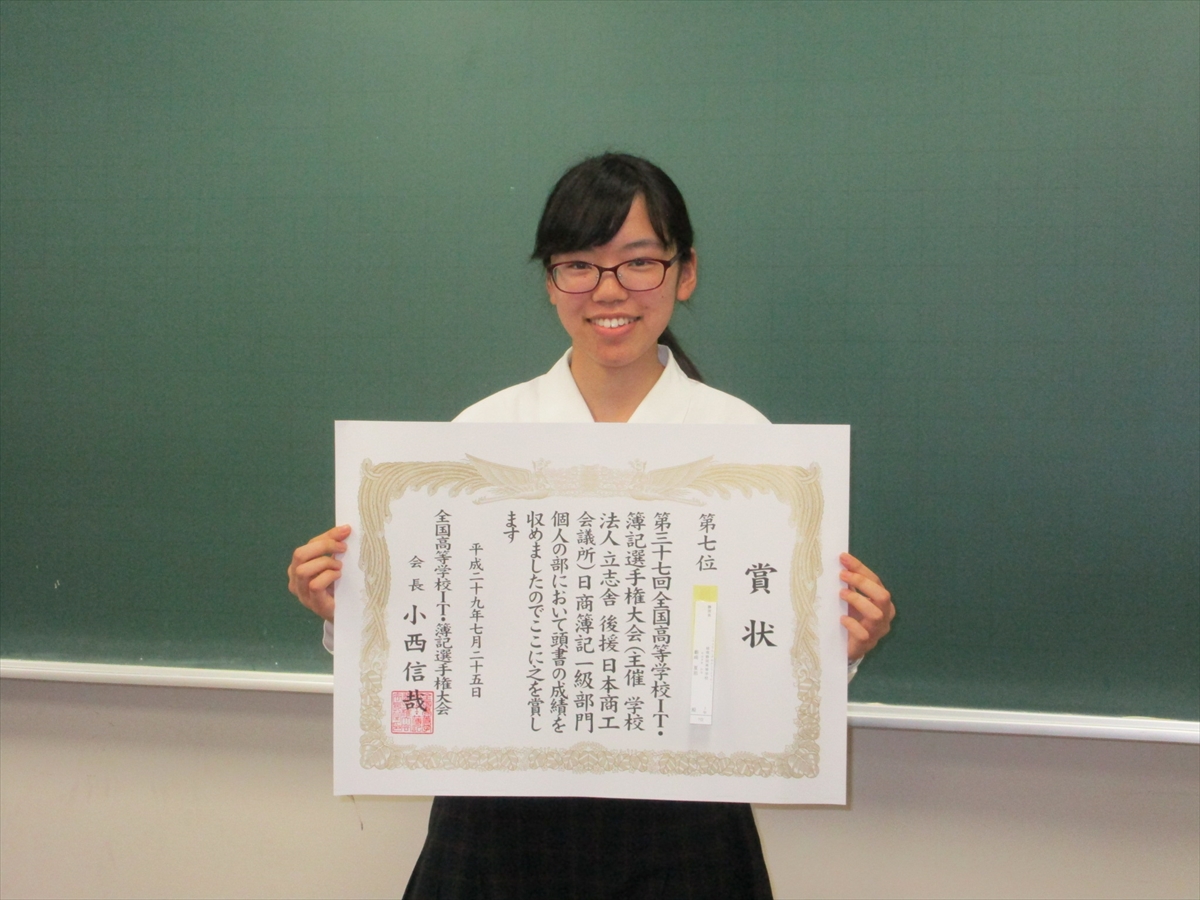 賞状
第七位
第三十七回全国高等学校IT・
簿記選手権大会(主催 学校
法人 立志舎 後援 日本商工
会議所)日商簿記一級部門
個人の部において頭書の成績を
収めましたのでここに之を賞し
ます
平成二十九年七月二十五日
全国高等学校IT・簿記選手権大会
会長 小西信哉